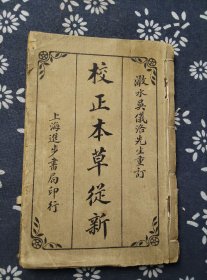 澉水吳儀洛先生重訂
校正本草從新
上海進步書局印行